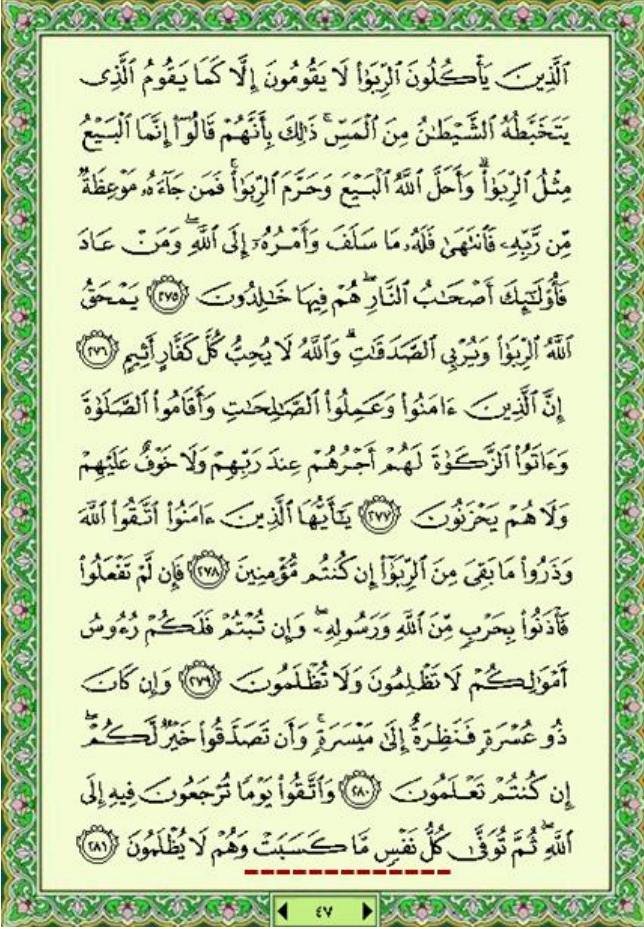 ٱلَّذِينَ يَأْكُلُونَ ٱلرِّبَوٰا۟ لَا يَقُومُونَ إِلَّا كَمَا يَقُومُ ٱلَّذِى
يَتَخَبَّطُهُ ٱلشَّيْطَـٰنُ مِنَ ٱلْمَسِّ ۚ ذَٰلِكَ بِأَنَّهُمْ قَالُوٓا۟ إِنَّمَا ٱلْبَيْعُ
مِثْلُ ٱلرِّبَوٰا۟ ۗ وَأَحَلَّ ٱللَّهُ ٱلْبَيْعَ وَحَرَّمَ ٱلرِّبَوٰا۟ ۚ فَمَن جَآءَهُۥ مَوْعِظَةٌ
مِّن رَّبِّهِۦ فَٱنتَهَىٰ فَلَهُۥ مَا سَلَفَ وَأَمْرُهُۥٓ إِلَى ٱللَّهِ ۖ وَمَنْ عَادَ
فَأُو۟لَـٰٓئِكَ أَصْحَـٰبُ ٱلنَّارِ ۖ هُمْ فِيهَا خَـٰلِدُونَ ﴿٢٧٥﴾ يَمْحَقُ
ٱللَّهُ ٱلرِّبَوٰا۟ وَيُرْبِى ٱلصَّدَقَـٰتِ ۗ وَٱللَّهُ لَا يُحِبُّ كُلَّ كَفَّارٍ أَثِيمٍ ﴿٢٧٦﴾
إِنَّ ٱلَّذِينَ ءَامَنُوا۟ وَعَمِلُوا۟ ٱلصَّـٰلِحَـٰتِ وَأَقَامُوا۟ ٱلصَّلَوٰةَ
وَءَاتَوُا۟ ٱلزَّكَوٰةَ لَهُمْ أَجْرُهُمْ عِندَ رَبِّهِمْ وَلَا خَوْفٌ عَلَيْهِمْ
وَلَا هُمْ يَحْزَنُونَ ﴿٢٧٧﴾ يَـٰٓأَيُّهَا ٱلَّذِينَ ءَامَنُوا۟ ٱتَّقُوا۟ ٱللَّهَ
وَذَرُوا۟ مَا بَقِىَ مِنَ ٱلرِّبَوٰٓا۟ إِن كُنتُم مُّؤْمِنِينَ ﴿٢٧٨﴾ فَإِن لَّمْ تَفْعَلُوا۟
فَأْذَنُوا۟ بِحَرْبٍ مِّنَ ٱللَّهِ وَرَسُولِهِۦ ۖ وَإِن تُبْتُمْ فَلَكُمْ رُءُوسُ
أَمْوَٰلِكُمْ لَا تَظْلِمُونَ وَلَا تُظْلَمُونَ ﴿٢٧٩﴾ وَإِن كَانَ
ذُو عُسْرَةٍ فَنَظِرَةٌ إِلَىٰ مَيْسَرَةٍ ۚ وَأَن تَصَدَّقُوا۟ خَيْرٌ لَّكُمْ ۖ
إِن كُنتُمْ تَعْلَمُونَ ﴿٢٨٠﴾ وَٱتَّقُوا۟ يَوْمًا تُرْجَعُونَ فِيهِ إِلَى
ٱللَّهِ ۖ ثُمَّ تُوَفَّىٰ كُلُّ نَفْسٍ مَّا كَسَبَتْ وَهُمْ لَا يُظْلَمُونَ ﴿٢٨١﴾
٤٧